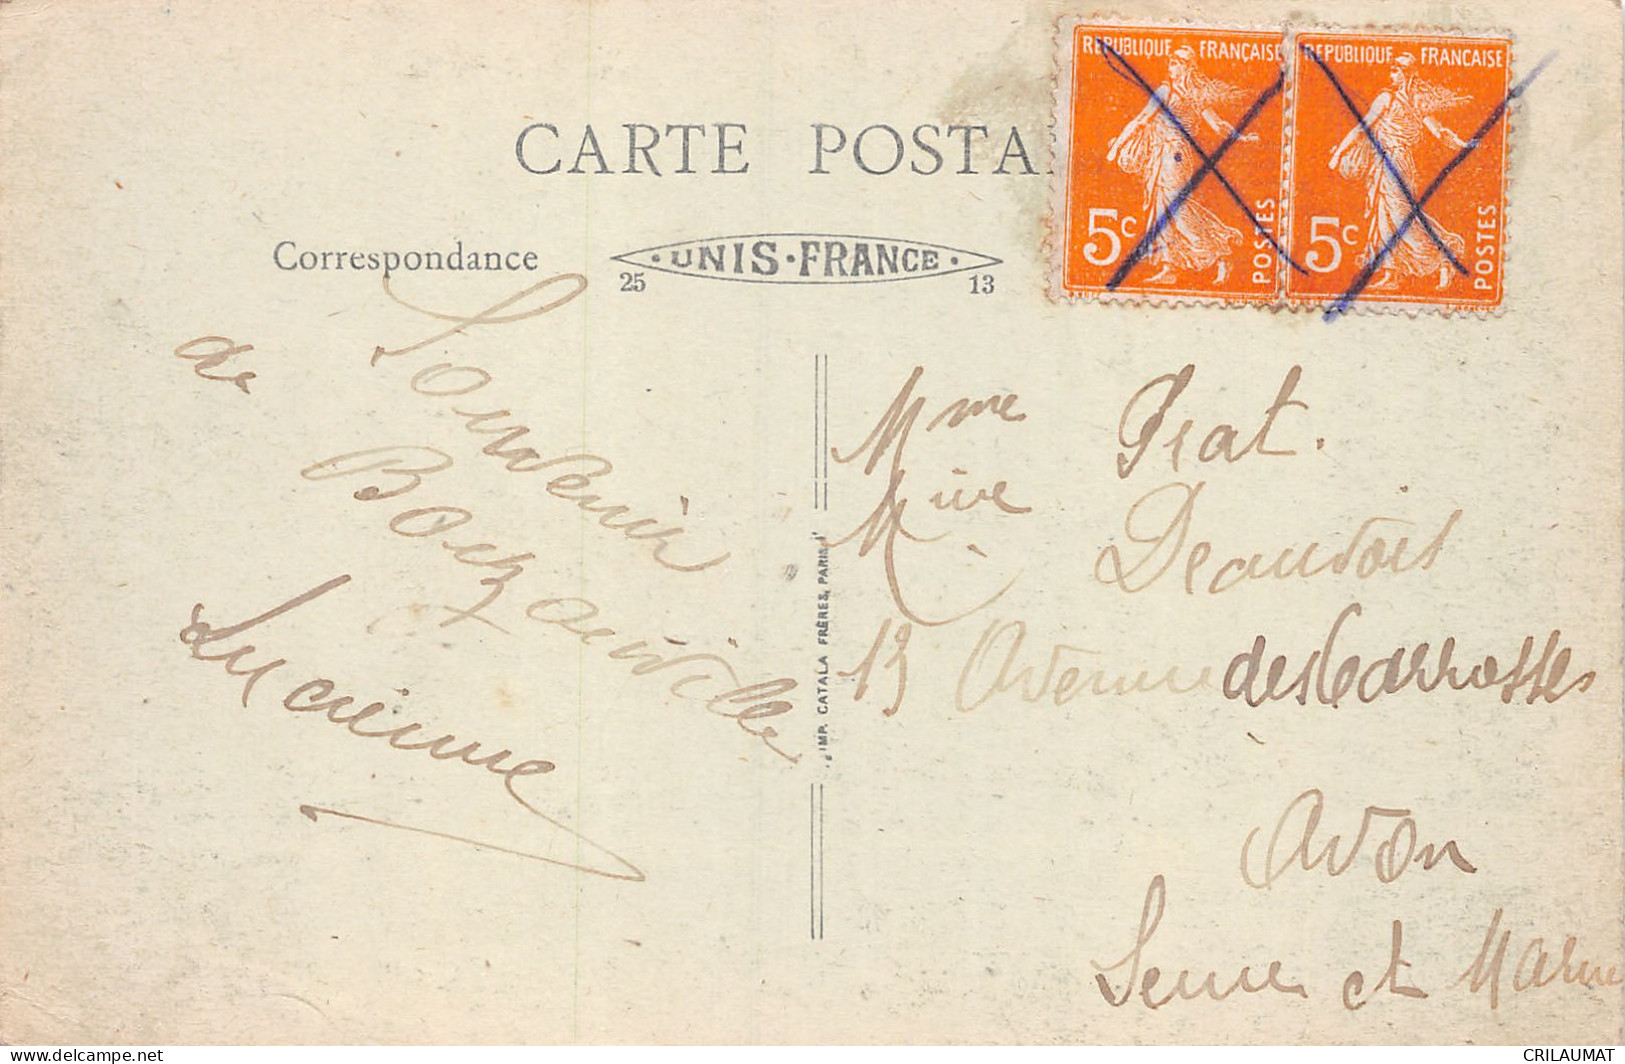 CARTE POSTA
REPUBLIQUE FRANÇAISE
5c
POSTES
REPUBLIQUE FRANCAISE
5c
POSTES
Correspondance
UNIS·FRANCE
25 13
Souvenir
de Bouzonville
Lucienne
IMP. CATALA FRÈRES, PARIS
Mme Prat.
13 Avenue des Carrosses
Avon
Seine et Marne
delcampe.net
CRILAUMAT